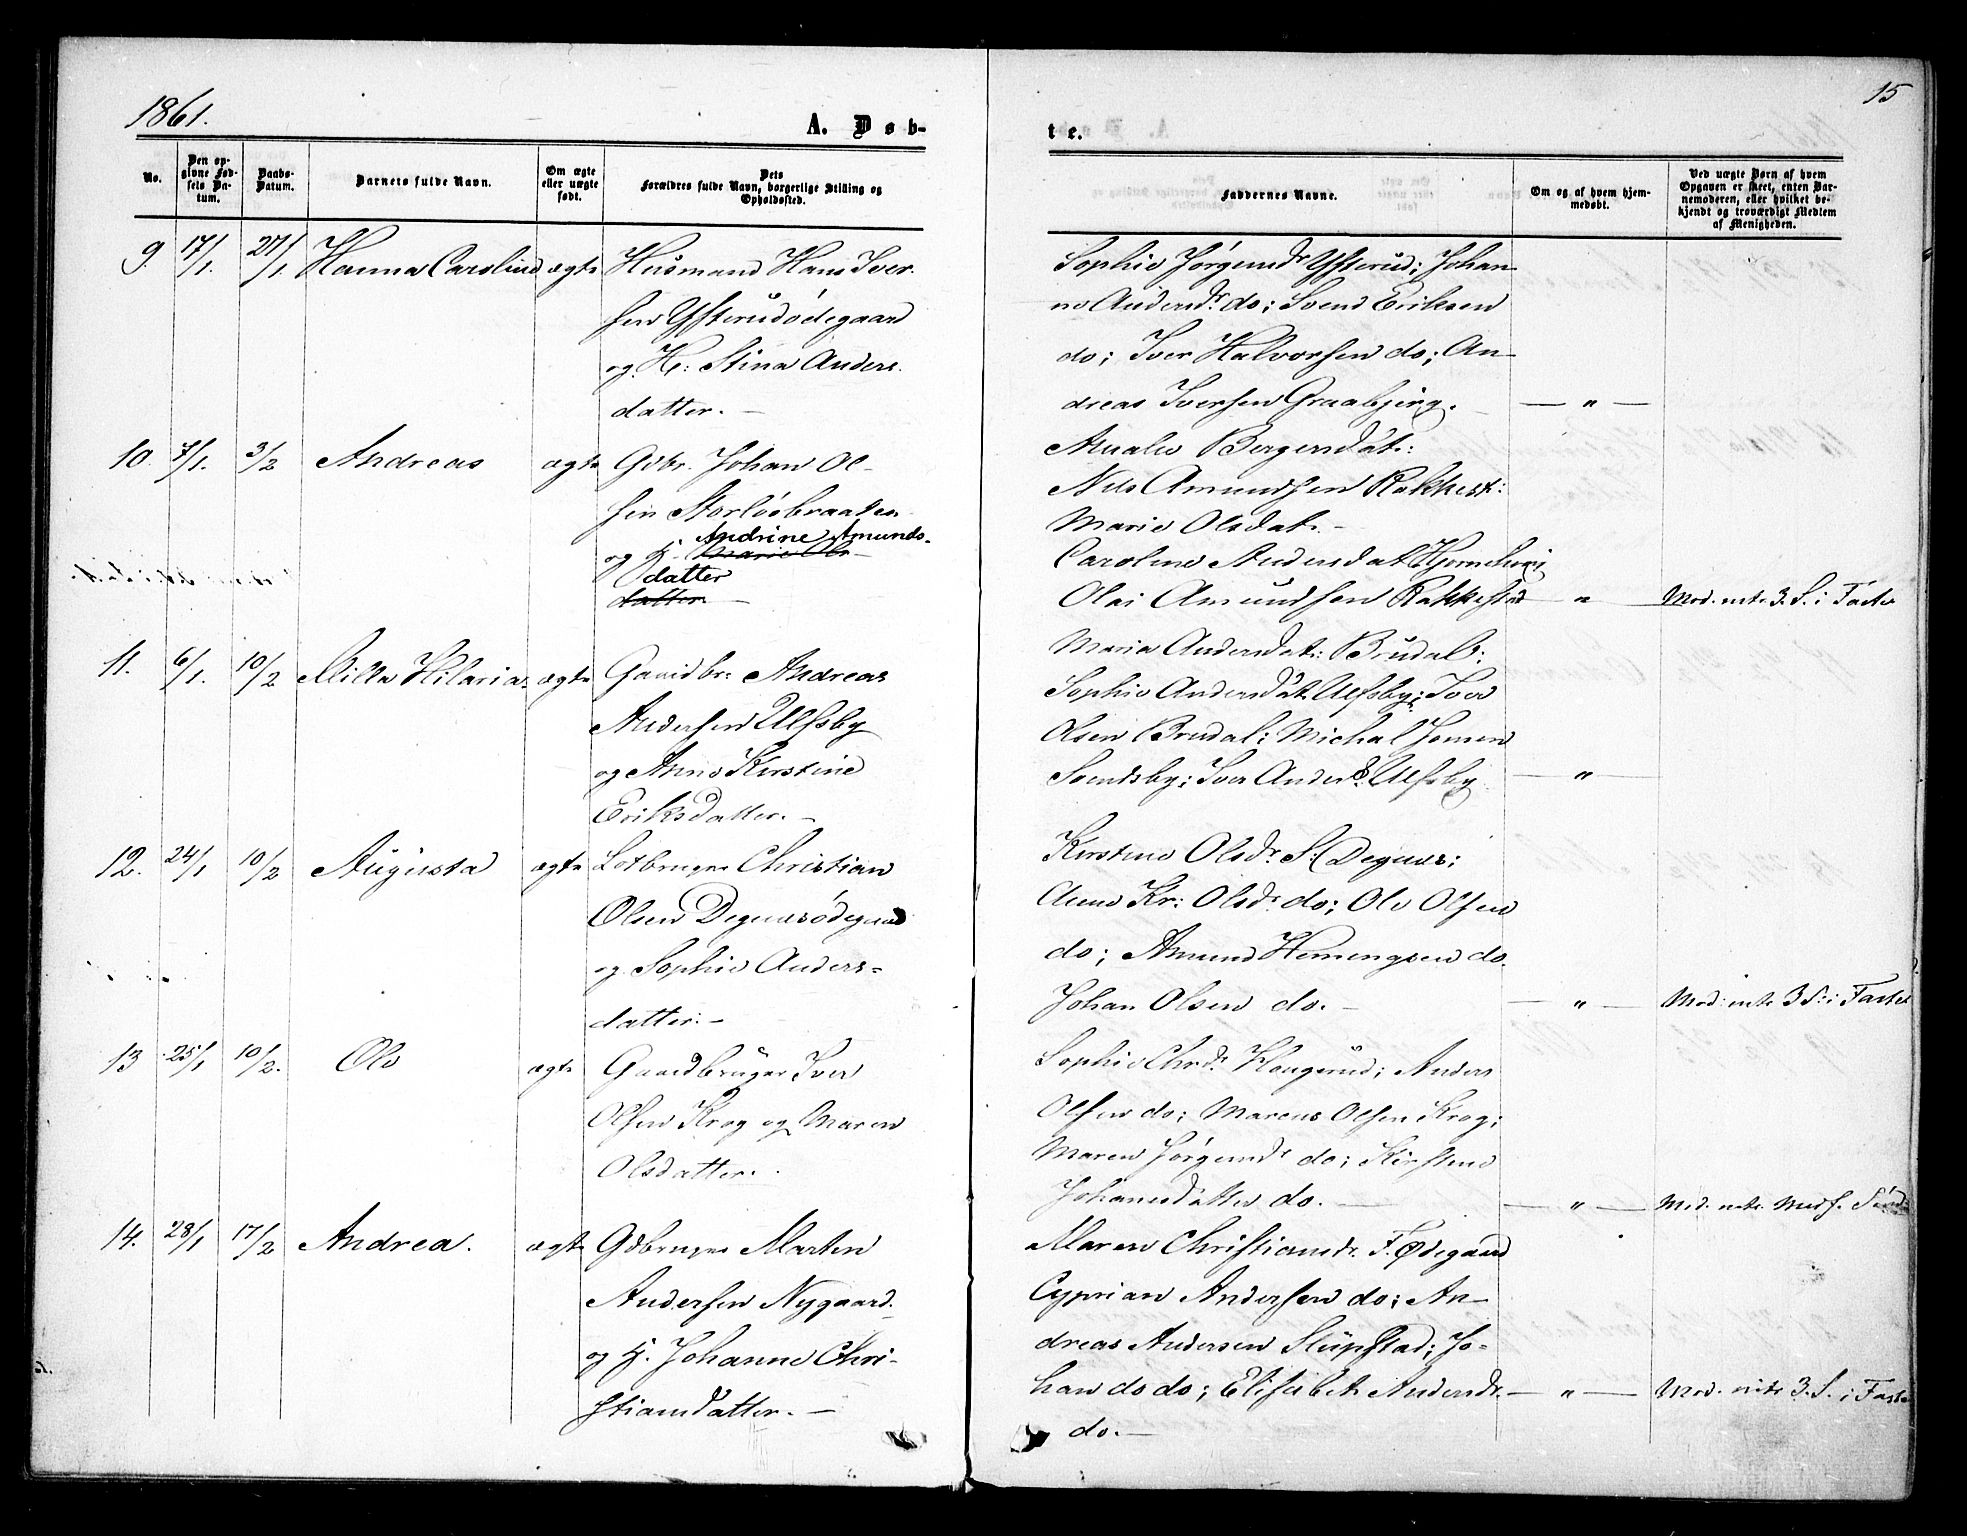 1861.
15
A. Døb-
te.
No.
Den op-
givne Fød-
sels Da-
tum.
Daabs-
Datum.
Barnets fulde Navn.
Om ægte
eller uægte
født.
Dets
Forældres fulde Navn, borgerlige Stilling og
Opholdssted.
Faddernes Navne.
Om og af hvem hjem-
medøbt.
Ved uægte Børn af hvem
Opgaven er skeet, enten Bar-
nemoderen, eller hvilket be-
kjendt og troværdigt Medlem
af Menigheden.
9. 17/1. 27/1. Hanna Caroline ægte Husmand Hans Iver-
sen Ysterudødegaard
og H: Stina Anders
datter. —
Sophie Jørgensdr Ysterud; Johan
ne Andersdr. do; Svend Eriksen
do; Iver Halvorsen do; An-
dreas Iversen Graabjerg. — " —
10. 7/1. 3/2 Andreas ægte Gdbr. Johan Ol-
sen Storløsbraaten
og H. Andrine Amunds-
datter
datter. —
Amalie Bergersdat:
Nils Amundsen Rakkest:
Marie Olsdat. —
Caroline Andersdat
Olai Amundsen Rakkestad — " — Mod. intr. 3. S. i Faste
11. 6/1. 10/2 Milla Hilaria. ægte Gaardbr: Andreas
Andersen Ulfsby
og Anne Kirstine
Eriksdatter. —
Maria Andersdat: Brudal;
Sophie Andersdat Ulfsby; Iver
Olsen Brudal; Michal Jensen
Svendsby; Iver Anders. Ulfsby — " —
12. 24/1 10/2 Augusta ægte Lodbruger Christian
Olsen Degnesødegaard
og Sophie Anders-
datter. —
Kirstine Olsdr. S. Degnes;
Anne Kr: Olsdr. do; Ole Olsen
do; Amund Hemengsen do.
Johan Olsen do. — — " — Mod: intr. 3 S: i Faste
13 25/1 10/2. Ole ægte Gaardbruger Iver
Olsen Krog og Maren
Olsdatter.
Sophie Chrdr. Haugerud; Anders
Olsen do; Marcus Olsen Krog;
Maren Jørgensdr do; Kirstine
Johannesdatter do. — — " — Mod. intr.
14. 28/1 17/2 Andrea. ægte Gdbruger Marten
Andersen Nygaard
og H. Johanne Chri-
stiansdatter. —
Maren Christiansdr. F. Ødegaard
Cyprian Andersen do; An-
dreas Andersen Slupstad; Jo-
han do do; Elisabeth Andersdr. — " — Mod. intr. 3. S. i Faste
do. —